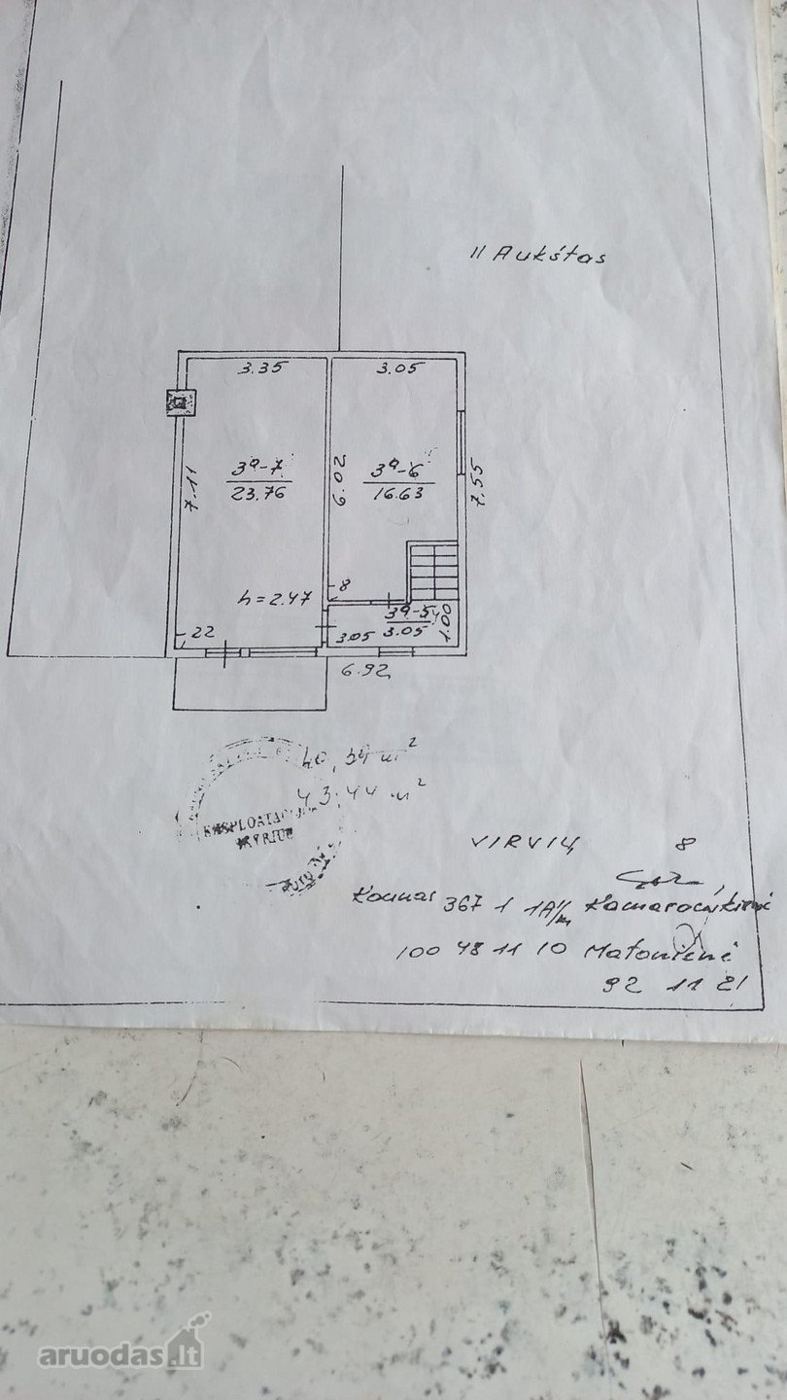 II Aukštas
3.35
3.05
7.11
3ª-7
23.76
6.02
3ª-6
16.63
7.55
h=2.47
8
22
3ª-5
3.05
1.00
3.05
6.92
40,39 m²
43.44 m²
EKSPLOATACIJ
VIRVIŲ 8
Kaunas 367 1 1A/m
100 48 11 10 Matonienė
92 11 21
aruodas.lt